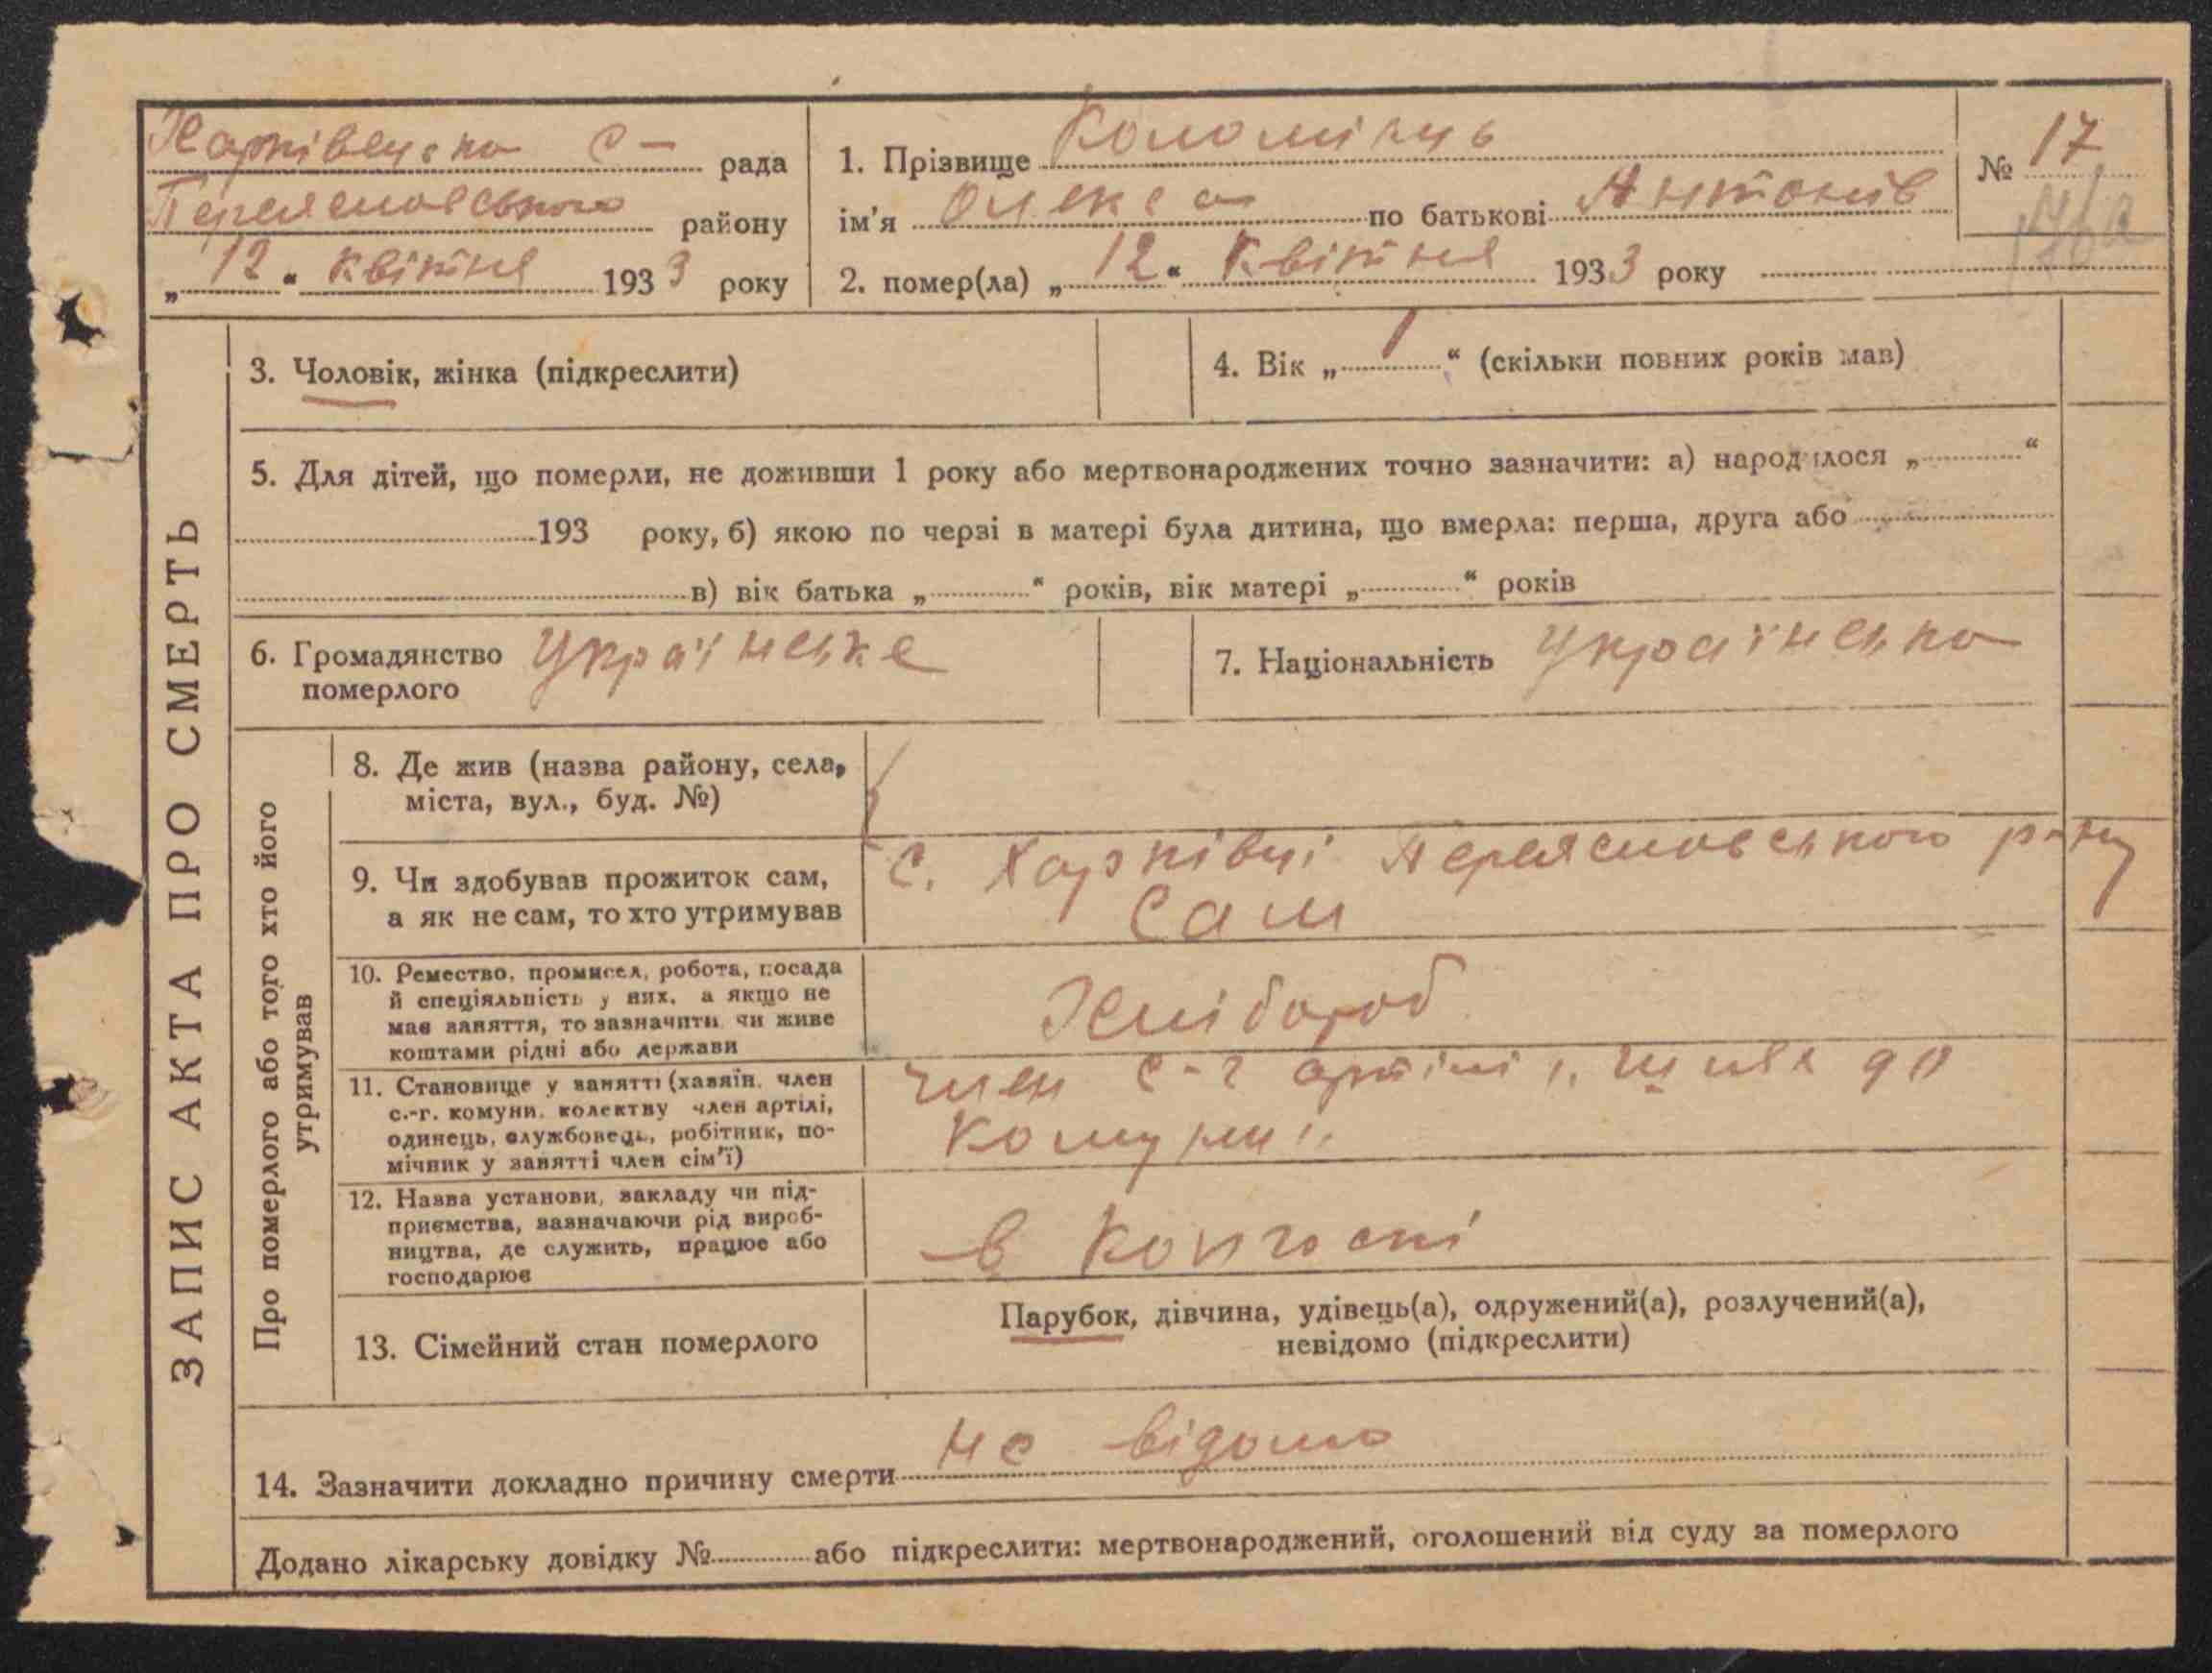 Харківецька с- рада
Переяславського району
„ 12 “ квітня 1933 року
1. Прізвище Коломієць
ім'я Олекса по батькові Антонів
2. помер(ла) „ 12 “ Квітня 1933 року
№ 17
ЗАПИС АКТА ПРО СМЕРТЬ
3. Чоловік, жінка (підкреслити)
4. Вік „ 1 “ (скільки повних років мав)
5. Для дітей, що померли, не доживши 1 року або мертвонароджених точно зазначити: а) народилося „ “
193 року, б) якою по черзі в матері була дитина, що вмерла: перша, друга або
в) вік батька „ “ років, вік матері „ “ років
6. Громадянство Українське
померлого
7. Національність Українська
Про померлого або того хто його
утримував
8. Де жив (назва району, села,
міста, вул., буд. №)
с. Харківці Переяславського р-ну
9. Чи здобував прожиток сам,
а як не сам, то хто утримував
Сам
10. Ремество, промисел, робота, посада
й спеціяльність у них, а якщо не
має заняття, то зазначити чи живе
коштами рідні або держави
Хлібороб
11. Становище у занятті (хазяїн, член
с.-г. комуни, колектву член артілі,
одинець, службовець, робітник, по-
мічник у занятті член сім'ї)
член с-г артілі, шлях до
комуни,
12. Назва установи, закладу чи під-
приємства, зазначаючи рід вироб-
ництва, де служить, працює або
господарює
в колгоспі
13. Сімейний стан померлого
Парубок, дівчина, удівець(а), одружений(а), розлучений(а),
невідомо (підкреслити)
14. Зазначити докладно причину смерти не відомо
Додано лікарську довідку № або підкреслити: мертвонароджений, оголошений від суду за померлого